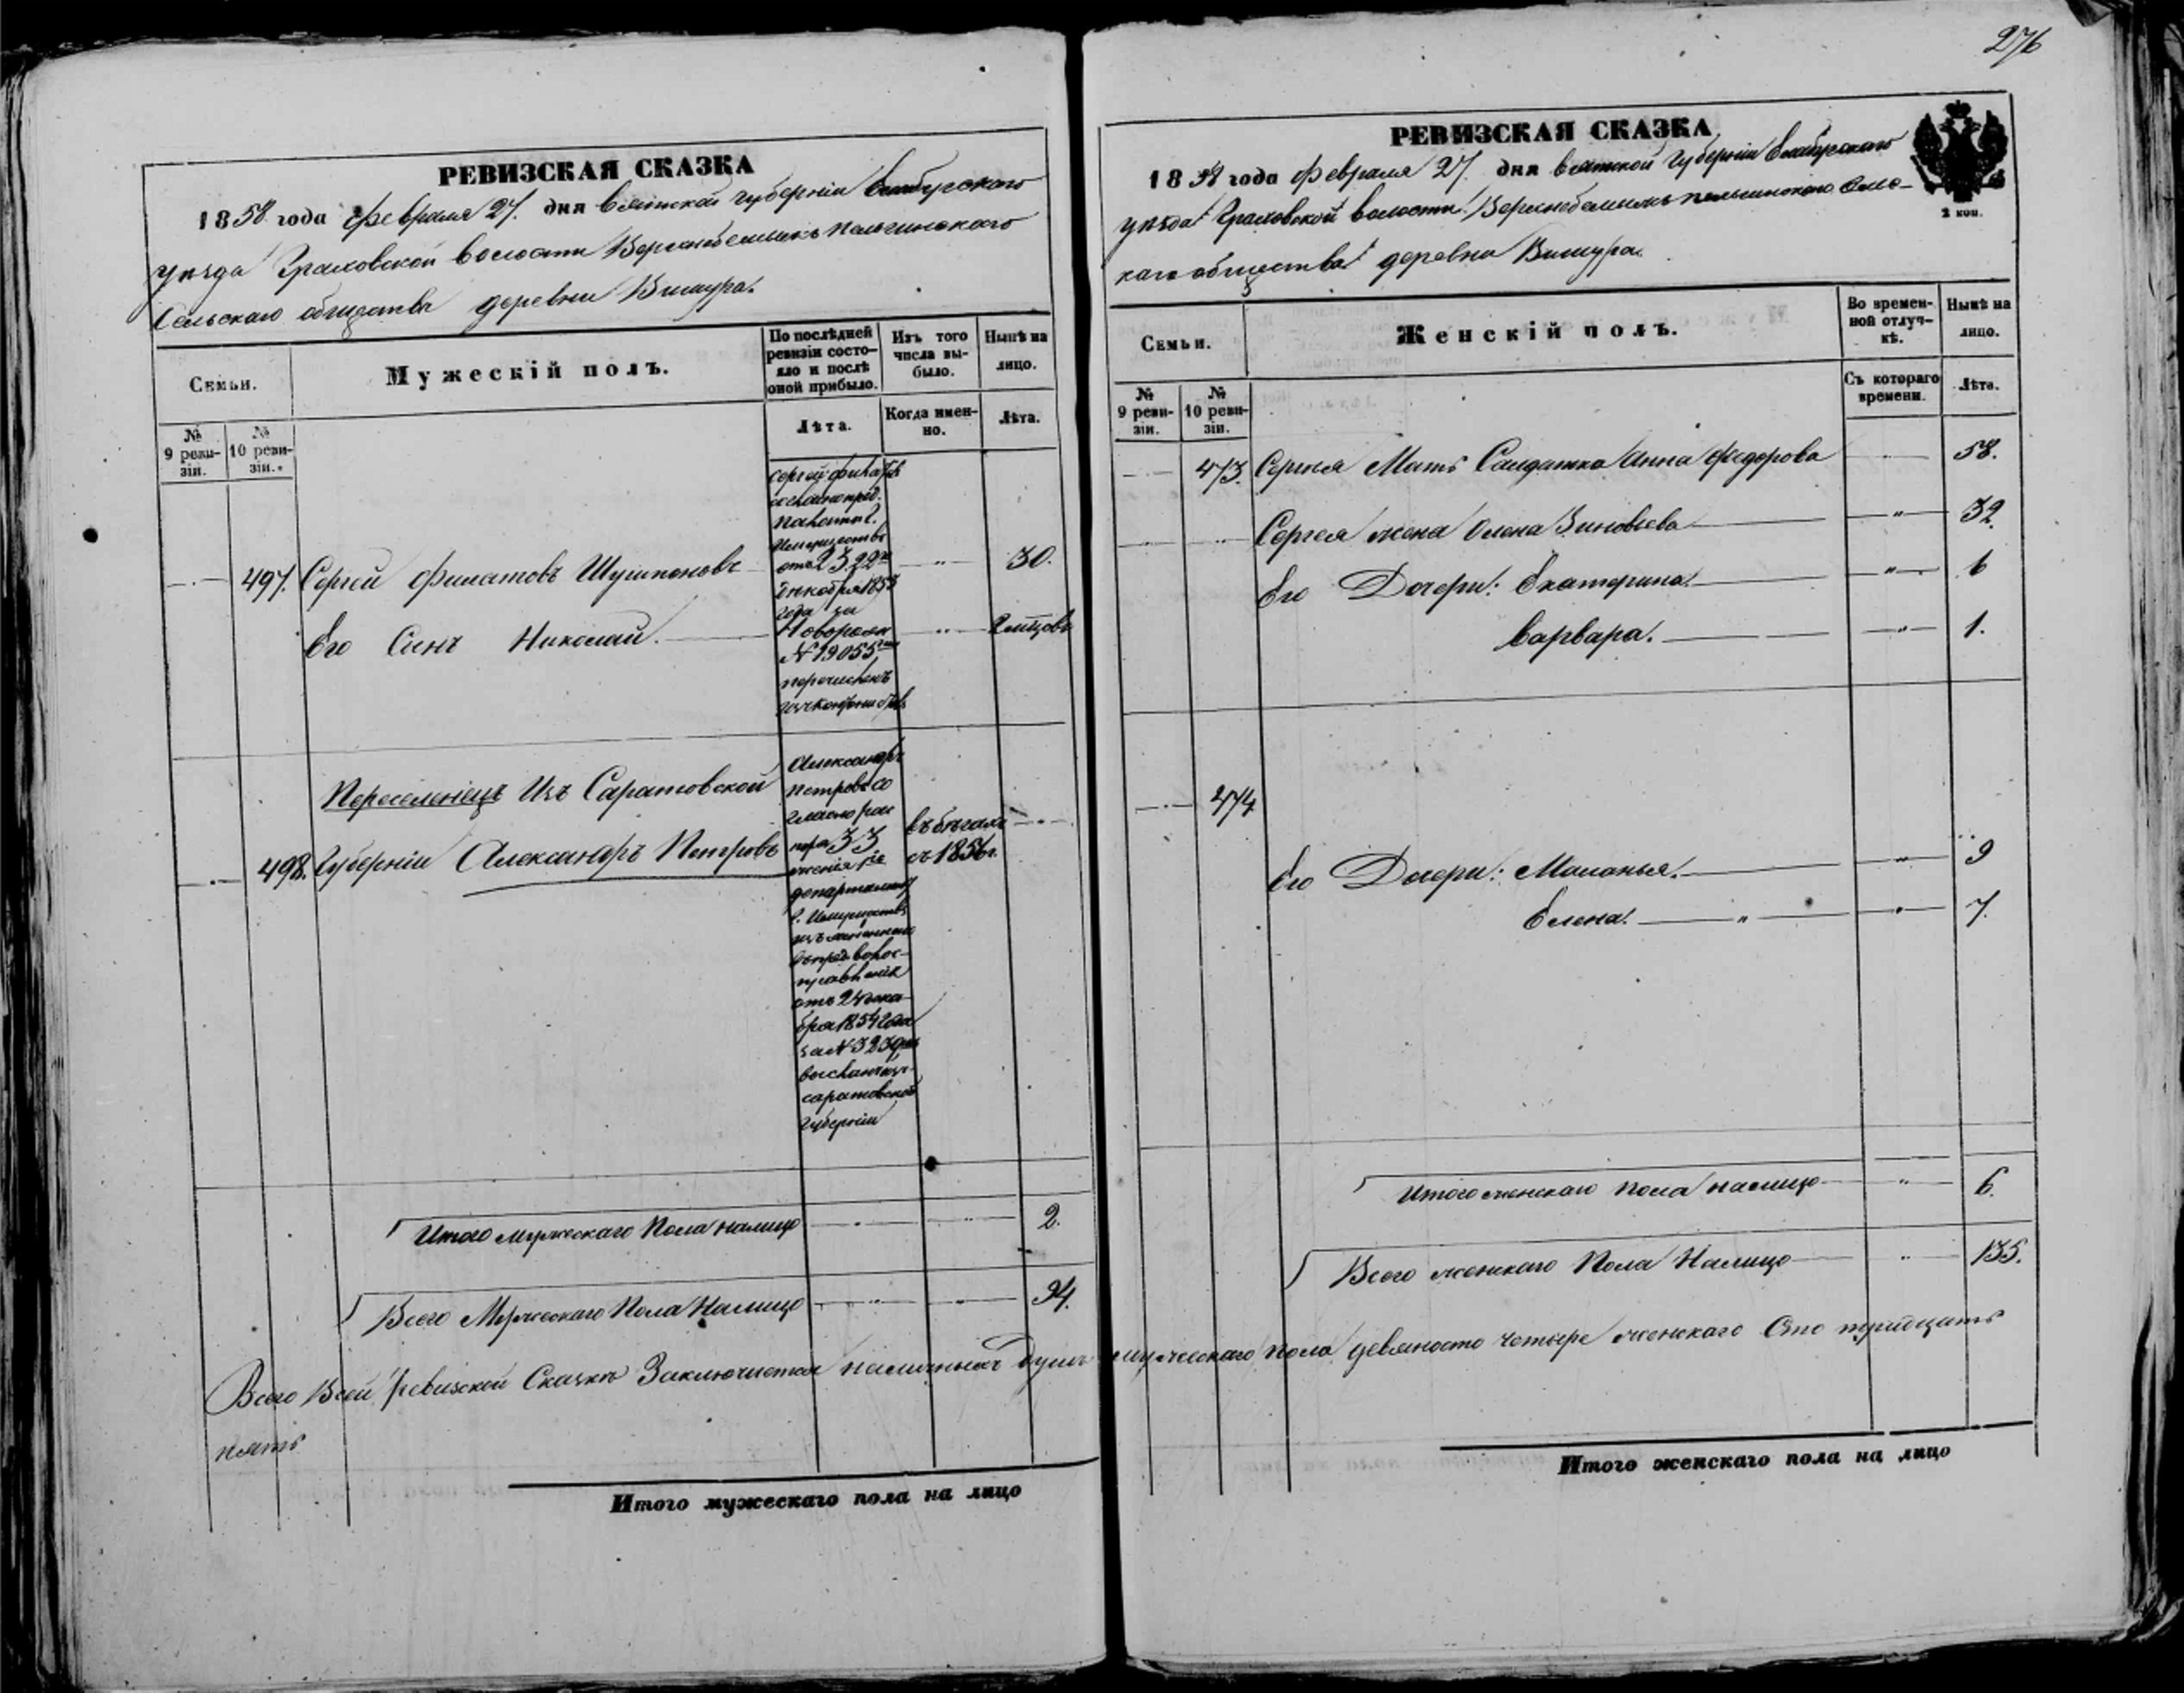 276
РЕВИЗСКАЯ СКАЗКА
1858 года Февраля 27. дня Вятской Губерніи Елабугскаго
уѣзда Граховской волости
Сельскаго общества деревни Вишура.
Семьи.
Мужескій полъ.
По послѣдней ревизіи состояло и послѣ оной прибыло.
Изъ того числа выбыло.
Нынѣ на лицо.
№ 9 ревизіи.
№ 10 ревизіи.
Лѣта.
Когда именно.
Лѣта.
497. Сергей Филатовъ 30.
Его Сынъ Николай.
Сергей Филатовъ
Имуществъ
отъ 23
22
декабря 1853
года за
№ 19055
перечисленъ
Переселенецъ Изъ Саратовской
498. Губерніи Александръ Петровъ 33 въ бѣгахъ съ 1856 г.
Александръ
Петровъ со
гласно рас
департамента
Г. Имуществъ
отъ 24 дека-
бря 1854 года
за № 3239
Саратовской
Губерніи
Итого мужескаго Пола налицо 2.
Всего Мужескаго Пола Налицо 94.
Итого мужескаго пола на лицо
РЕВИЗСКАЯ СКАЗКА
2 коп.
1858 года Февраля 27. дня Вятской Губерніи Елабугскаго
уѣзда Граховской волости
скаго общества деревни Вишура.
Семьи.
Женскій полъ.
Во временной отлучкѣ.
Нынѣ на лицо.
№ 9 ревизіи.
№ 10 ревизіи.
Съ котораго времени.
Лѣта.
473. Сергея Мать Солдатка Анна Федорова 58.
Сергея жена Олена Зиновьева " 32.
Его Дочери: Екатерина. " 6
Варвара. " 1.
474
Его Дочери: Маланья. " 9
Елена. " 7.
Итого женскаго пола налицо " 6.
Всего женскаго Пола Налицо " 135.
Всего Въ сей ревизской Сказкѣ Заключается наличныхъ Душъ мужескаго пола девяносто четыре женскаго Сто тридцать
пять
Итого женскаго пола на лицо